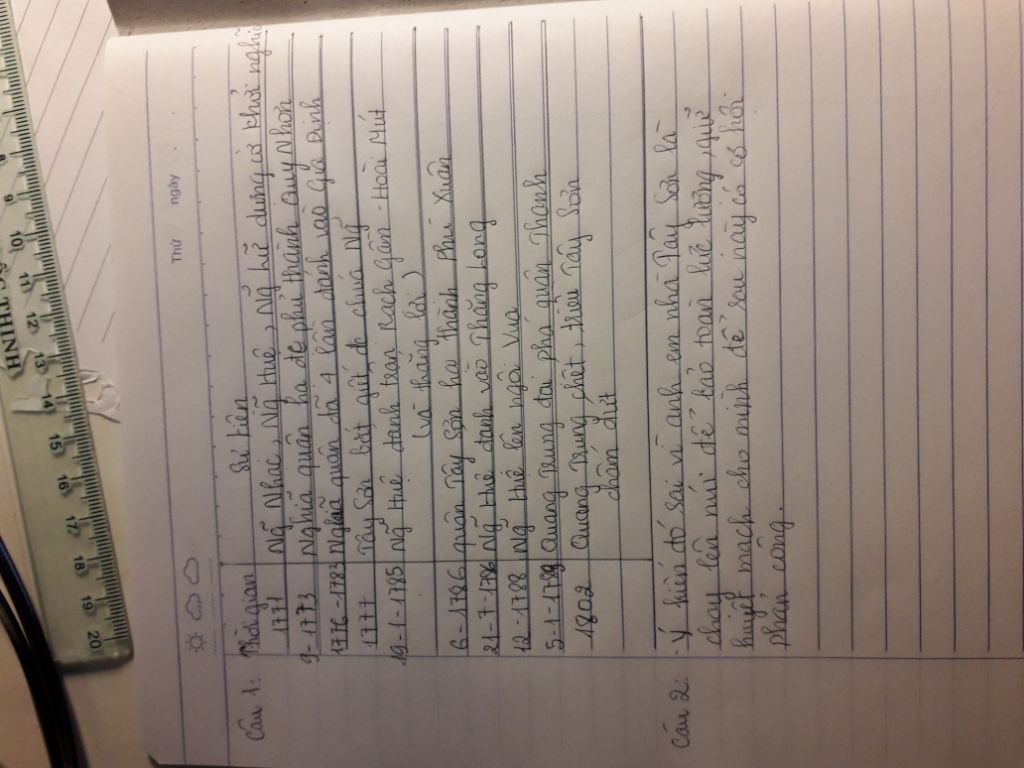 Thứ ngày
Câu 1: Thời gian Sử kiện
1771 Ng̃ Nhạc, Ng̃ Huệ, Ng̃ Lữ dựng cờ khởi nghĩa
9-1773 Nghĩa quân hạ đc phủ thành Quy Nhơn
1776-1783 Nghĩa quân đã 4 lần đánh vào Gia Định
1777 Tây Sơn bắt giết đc chúa Ng̃
19-1-1785 Ng̃ Huệ đánh trận Rạch gầm - Hoài Mút
(và thắng lợi)
6-1786 quân Tây Sơn hạ thành Phú Xuân
21-7-1786 Ng̃ Huệ đánh vào Thăng Long
12-1788 Ng̃ Huệ lên ngôi Vua
5-1-1789 Quang Trung đại phá quân Thanh
1802 Quang Trung chết, triều Tây Sơn
chấm dứt
Câu 2: - Ý kiến đó sai vì anh em nhà Tây Sơn là
chạy lên núi để bảo toàn lực lượng, giữ
huyết mạch cho mình để sau này có cơ hội
phản công.
20 19 18 17 16 15 14 13 12 11 10 9 8